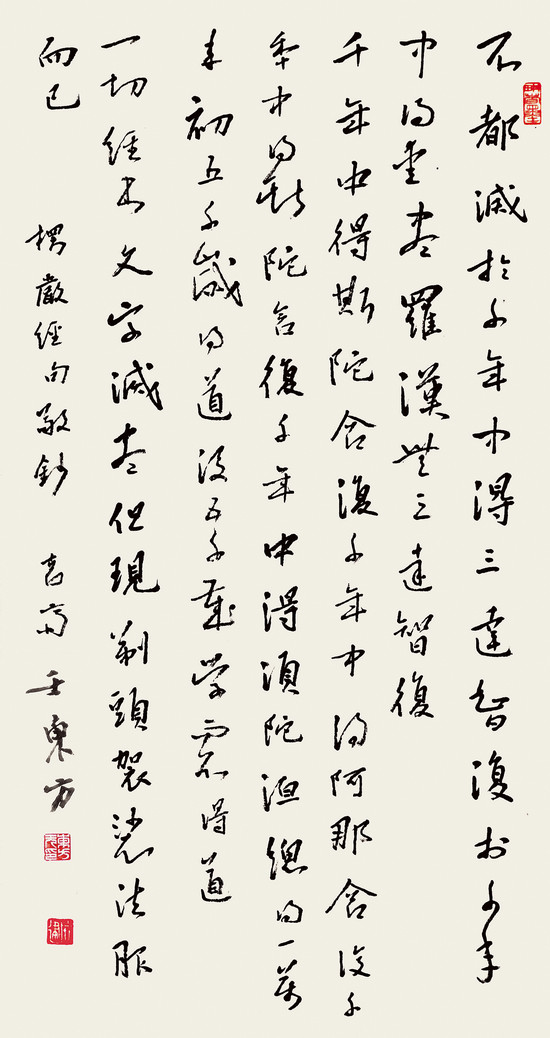 不都滅於千年中得三達智復於千年
中得愛盡羅漢無三達智復
千年中得斯陀含復千年中得阿那含復千
年中得斯陀含復千年中得須陀洹總得一萬
年初五千歲得道後五千歲學而不得道
一切經書文字滅盡但現剃頭袈裟法服
而已
楞嚴經句敬鈔 東方